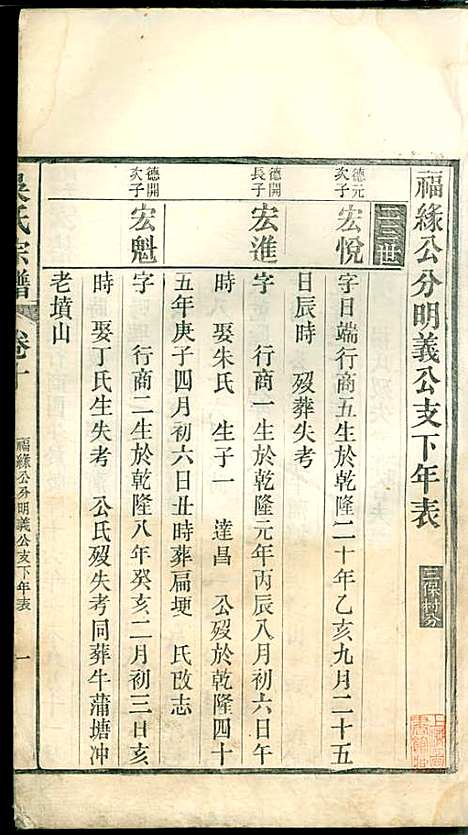 福緣公分明義公支下年表
三保村分
三世
德元次子
宏悅
字日端行商五生於乾隆二十年乙亥九月二十五
日辰時 歿葬失考
德開長子
宏進
字 行商一生於乾隆元年丙辰八月初六日午
時 娶朱氏 生子一 達昌 公歿於乾隆四十
五年庚子四月初六日丑時葬扁埂 氏改志
德開次子
宏魁
字 行商二生於乾隆八年癸亥二月初三日亥
時 娶丁氏生失考 公氏歿失考同葬牛蒲塘冲
老墳山
吳氏宗譜
卷十
福緣公分明義公支下年表
一